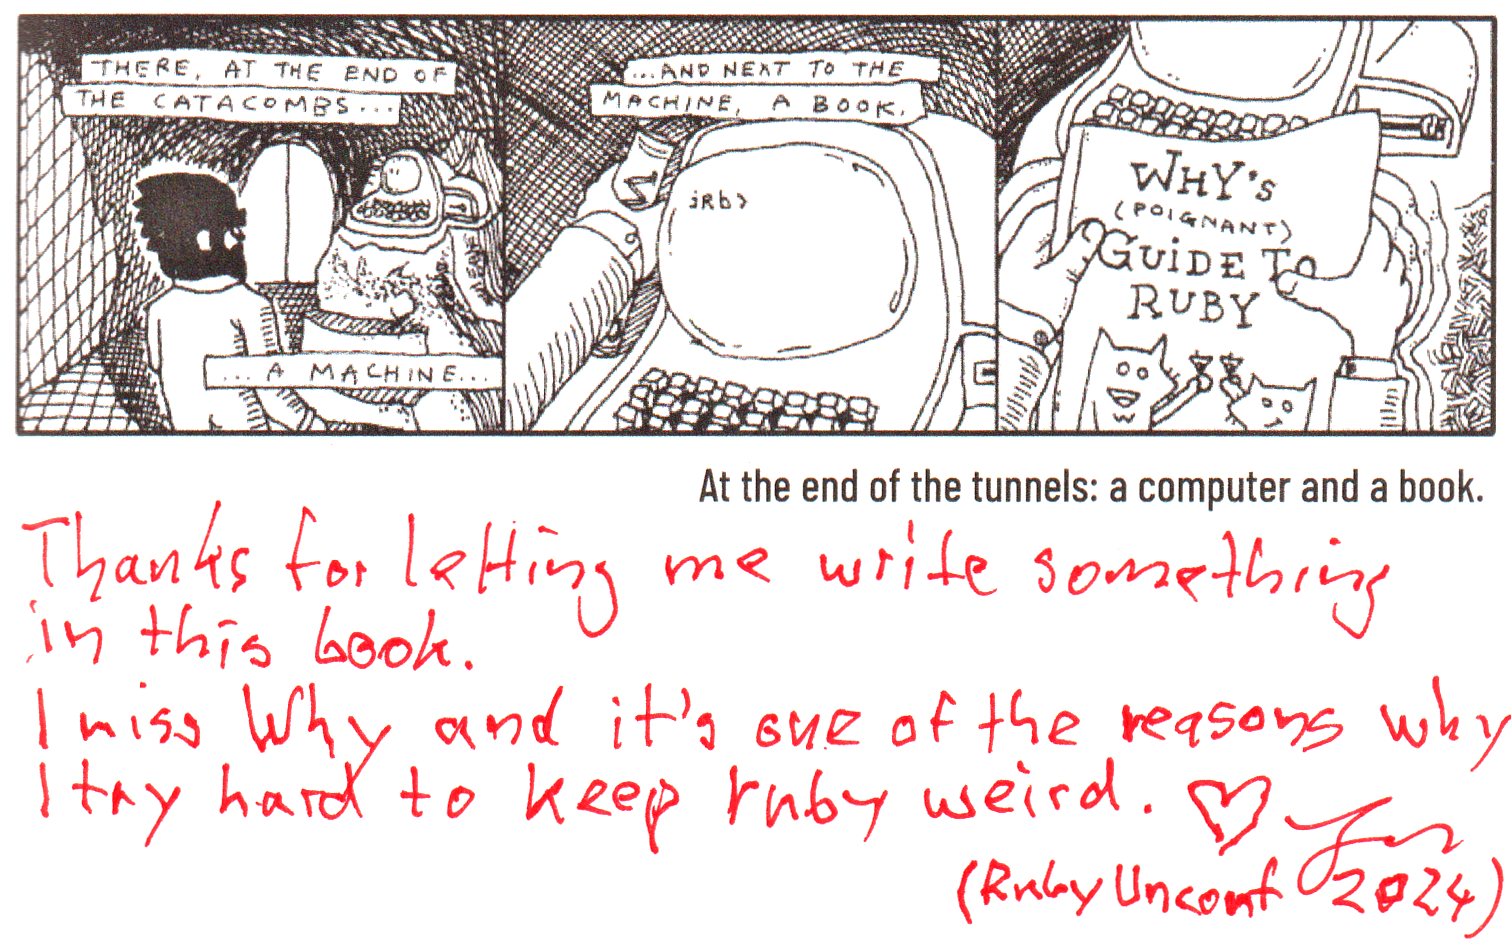 THERE, AT THE END OF
THE CATACOMBS...
...A MACHINE...
...AND NEXT TO THE
MACHINE, A BOOK.
iRb>
WHY'S
(POIGNANT)
GUIDE TO
RUBY
At the end of the tunnels: a computer and a book.
Thanks for letting me write something
in this book.
I miss Why and it's one of the reasons why
I try hard to keep ruby weird.
(RubyUnconf 2024)